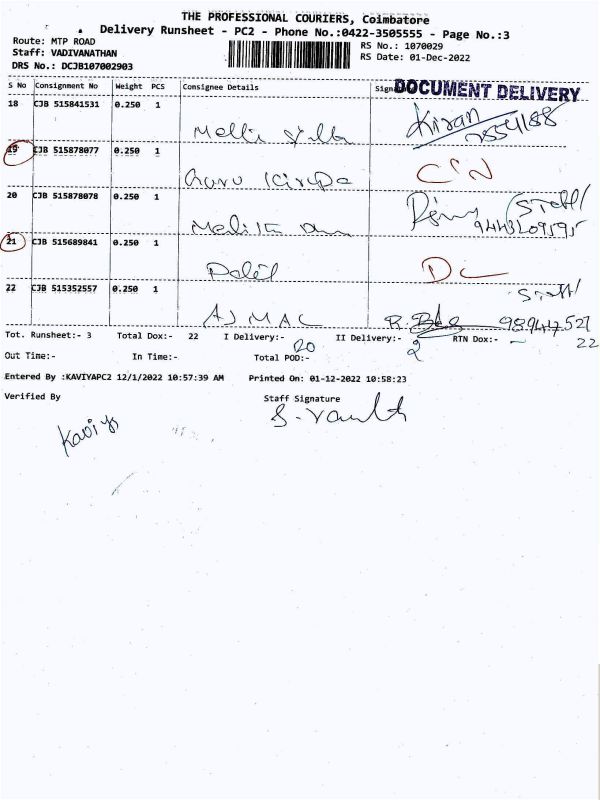 THE PROFESSIONAL COURIERS, Coimbatore
Delivery Runsheet - PC2 - Phone No.:0422-3505555 - Page No.:3
Route: MTP ROAD
RS No.: 1070029
Staff: VADIVANATHAN
RS Date: 01-Dec-2022
DRS No.: DCJB107002903
S No Consignment No Weight PCS Consignee Details Sign
DOCUMENT DELIVERY
18 CJB 515841531 0.250 1
Kiran
19 CJB 515878077 0.250 1
20 CJB 515878078 0.250 1
Staff
21 CJB 515689841 0.250 1
Staff
22 CJB 515352557 0.250 1
AJ MAC
Tot. Runsheet:- 3 Total Dox:- 22 I Delivery:- 20 II Delivery:- 2 RTN Dox:- 22
Out Time:- In Time:- Total POD:-
Entered By :KAVIYAPC2 12/1/2022 10:57:39 AM Printed On: 01-12-2022 10:58:23
Verified By Staff Signature
Kaviya